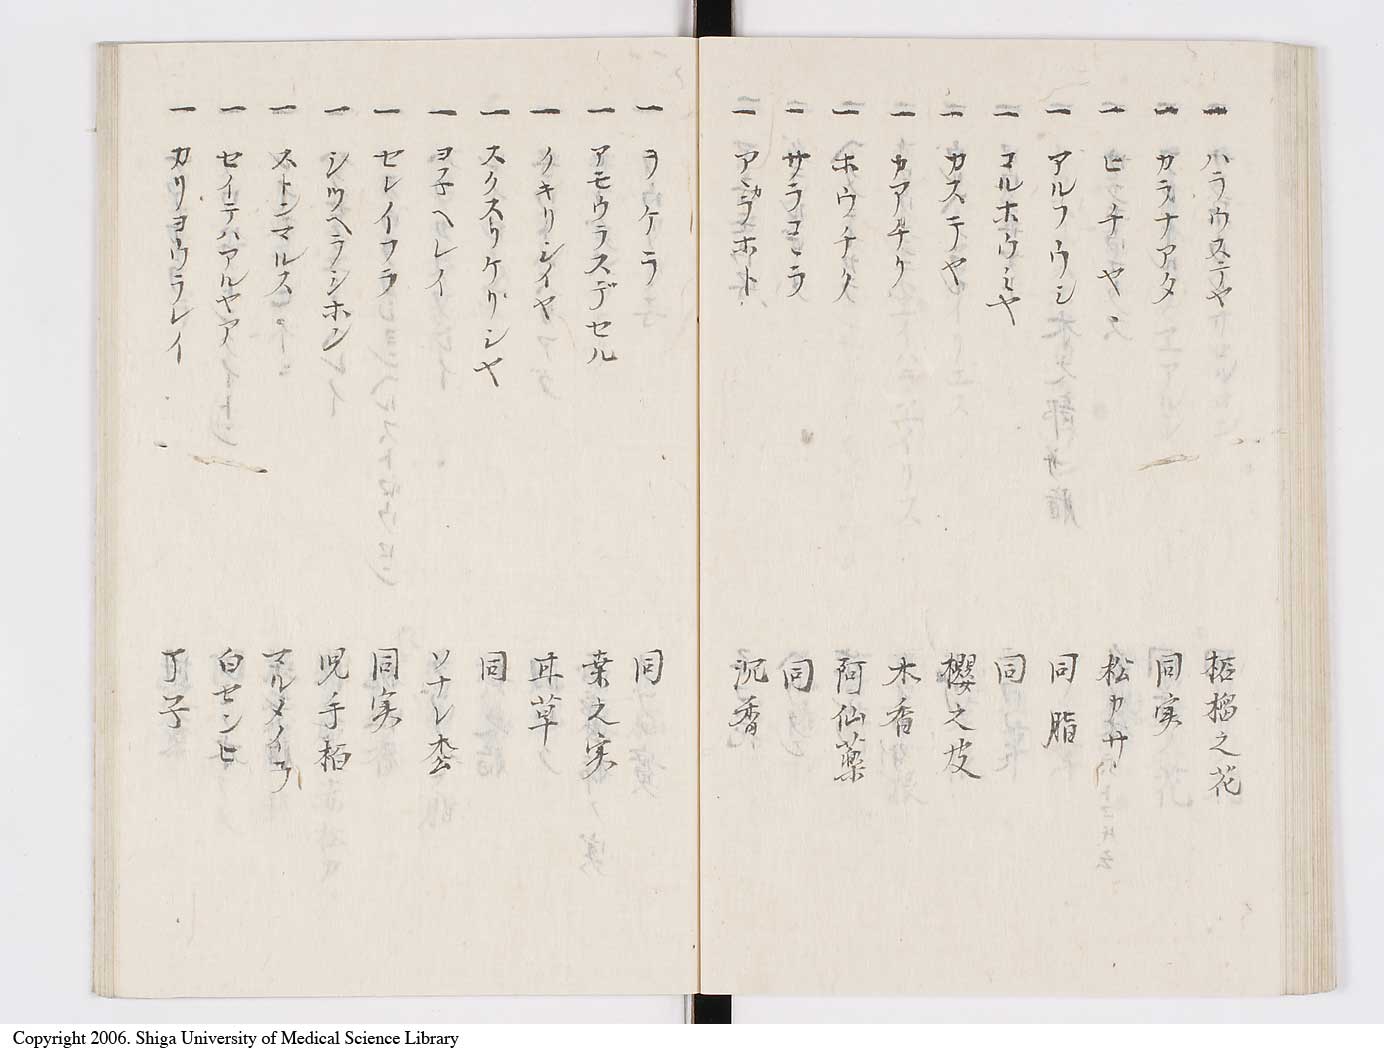 一 ハラウステヤ 柘榴之花
一 カラナアタ 同実
一 ヒンチヤス 松カサ
一 アルフウシ 同脂
一 コルホウシヤ 同
一 カステヤ 櫻之皮
一 カアチク 木香
一 ホウチク 阿仙薬
一 サラコラ 同
一 アンラホト 沉香
一 ヲウケラ 同
一 アモウラスデセル 桒之実
一 ノキリシイヤ 耳草
一 スクスリケリシヤ 同
一 ヨ子ヘレイ ソナレ枩
一 セレイフラ 同実
一 シツヘラシホシ 児手栢
一 ストンマルス マルメイラ
一 セイテハアルヤア 白センヒ
一 カリヨウラレイ 丁子
Copyright 2006. Shiga University of Medical Science Library